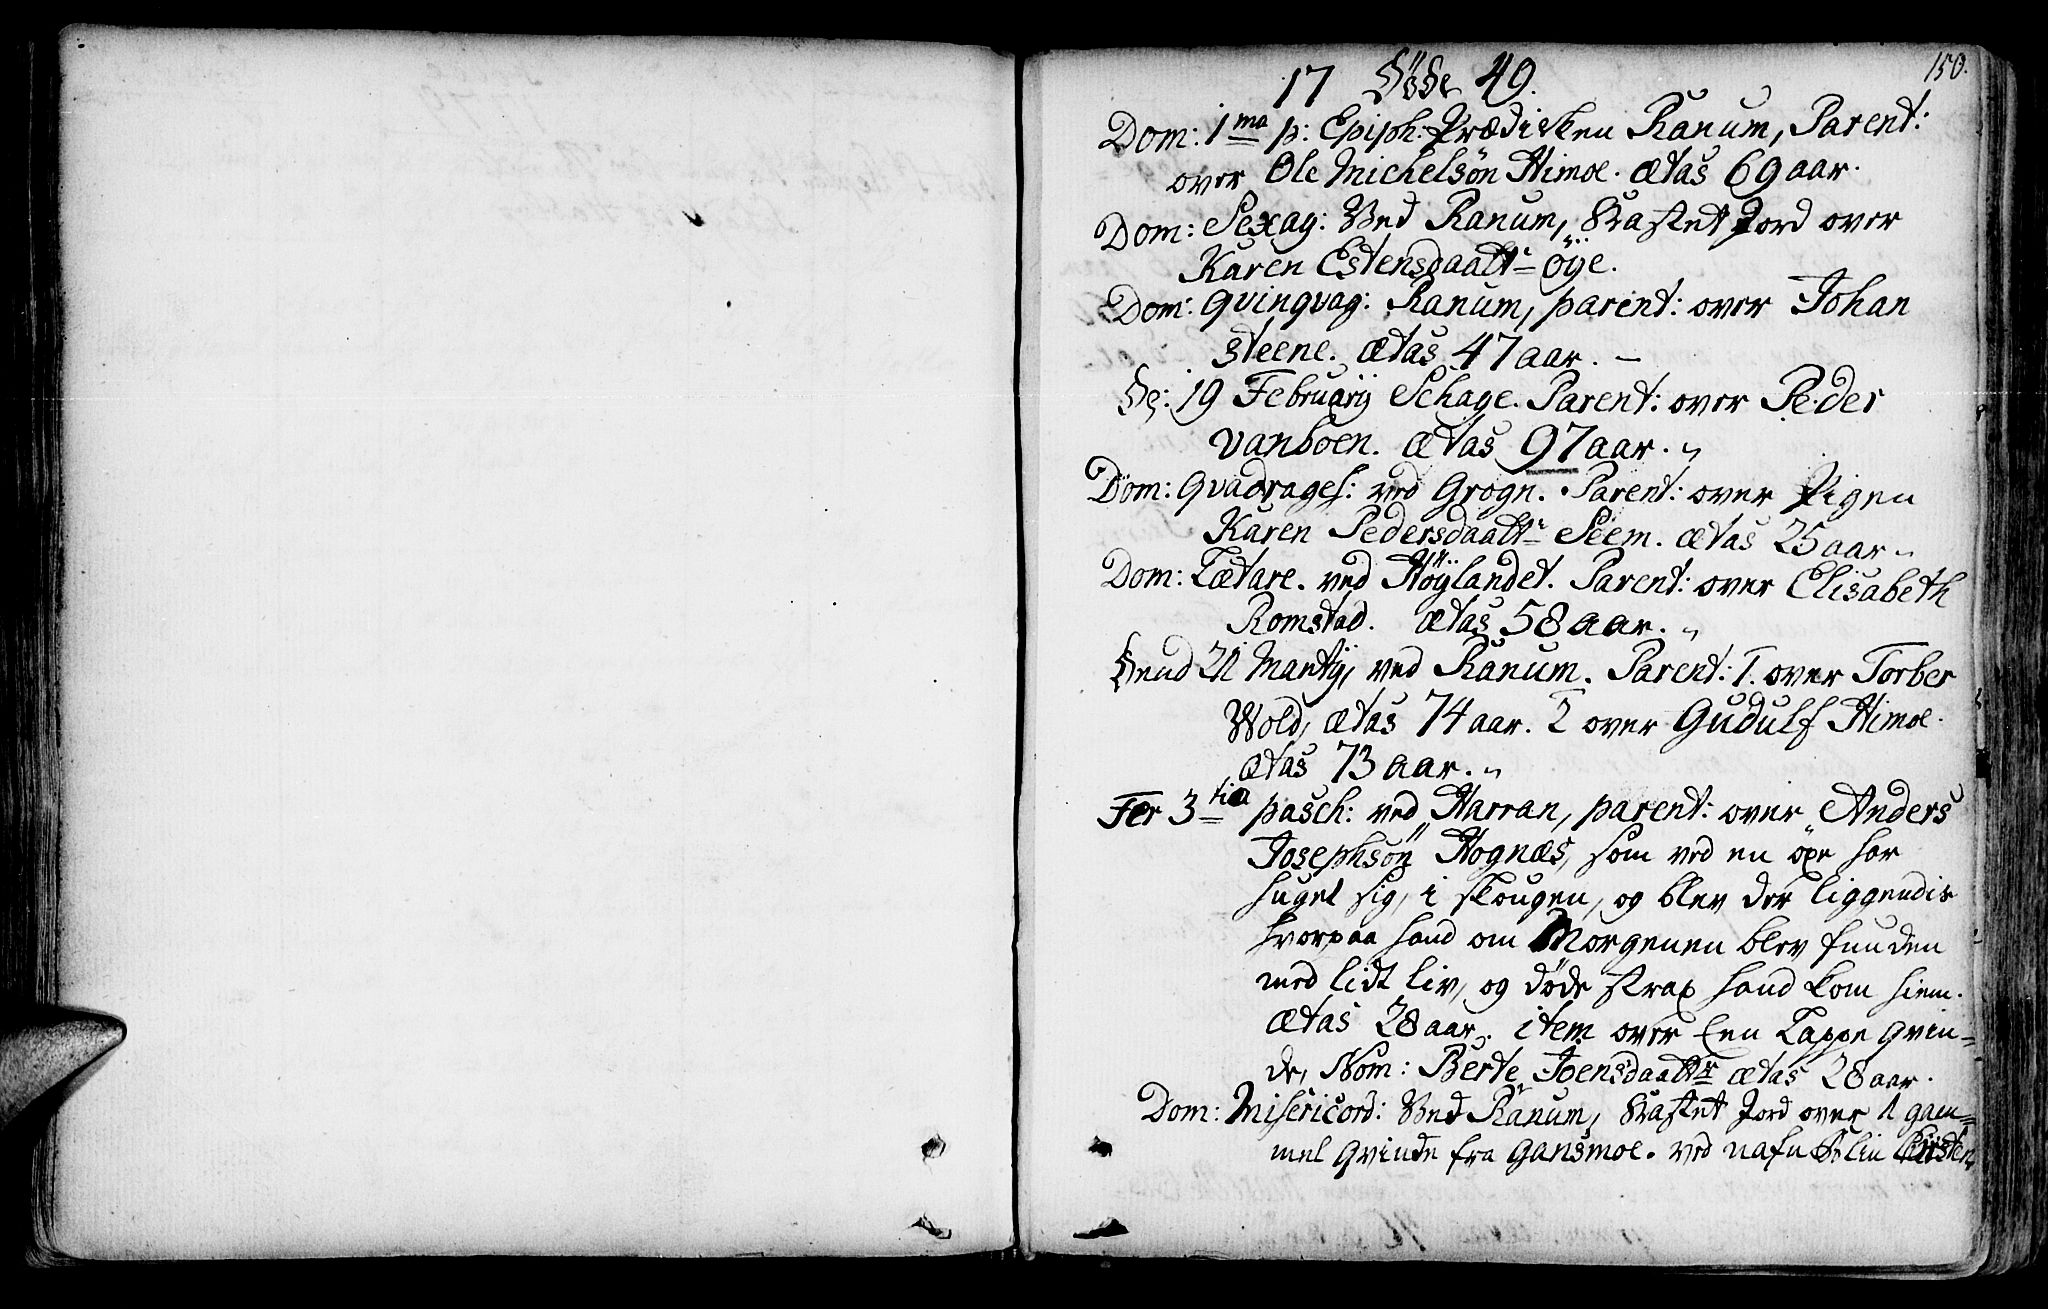 150.
17 Døde 49.
Dom: 1ma p: Epiph: Prædisken Ranum, Parent:
over Ole Michelsøn Himoe. ætas 69 aar.
Dom: Sexag: Ved Ranum, Kastet Jord over
Karen Estensdaattr Øÿe.
Dom: Qvinqvag: Ranum, parent: over Johan
steene. ætas 47 aar. –
De: 19 Februarij Schage. Parent: over Peder
vanboen. ætas 97 aar.
Dom: Qvadrages: ved Grogn. Parent: over Pigen
Karen Pedersdaattr Seem. ætas 25 aar
Dom: Lætare. ved Høÿlandet. Parent: over Elisabeth
Romstad. ætas 58 aar.
Dend 21 Martij, ved Ranum. Parent: 1. over Torber
Wold, ætas 74 aar. 2 over Gudulf Himoe.
ætas 73 aar.
Fer 3tia pasch: ved Harran, parent: over Anders
Josephsøn Hognæs, som ved en øxe har
huget sig, i skougen, og blev der liggendis
hvorpaa hand om Morgenen blev funden
med lidt liv, og døde strax hand kom hiem.
ætas 28 aar. item over Een Lappe qvin=
de, Nom: Berte Joensdaattr ætas 28 aar.
Dom: Misericord: Ved Ranum, Kastet Jord over 1 gam=
mel qvinde fra Gansmoe. ved nafn Kirsten